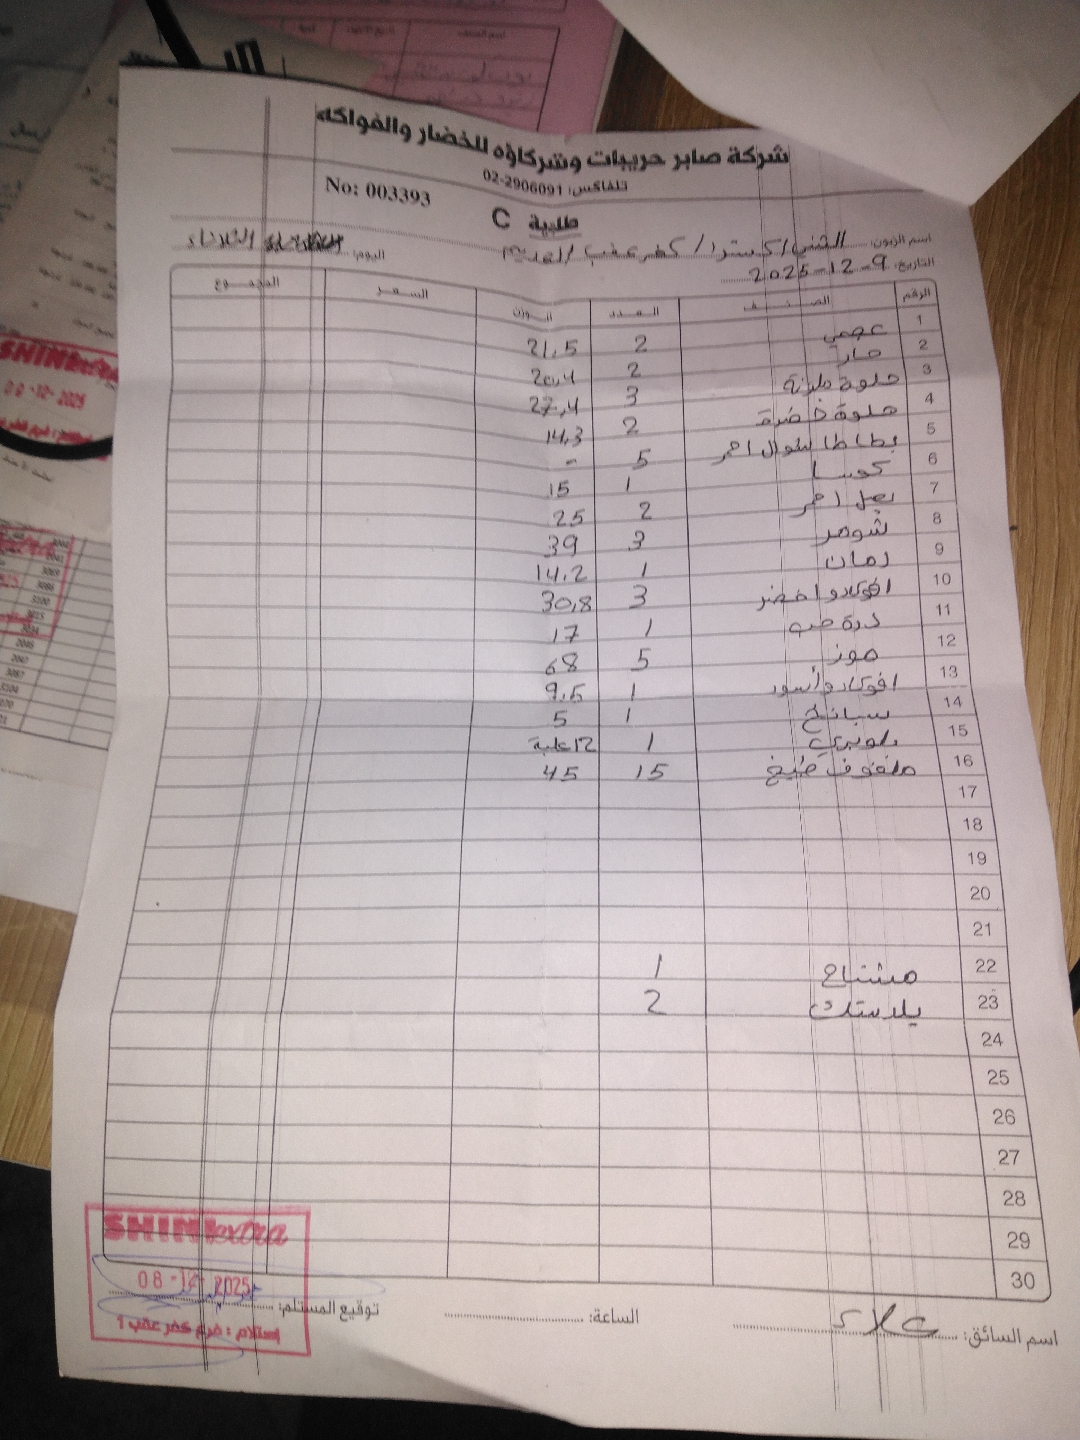 شركة صابر حريبات وشركاؤه للخضار والفواكه
تلفاكس: 02-2906091
No: 003393
طلبية C
اسم الزبون: الشني اكسترا / كفر عقب / القديم
اليوم: الثلاثاء
التاريخ: 9-12-2025
الرقم الصنف العدد الوزن السعر المجموع
1 عجمي 2 21,5
2 حار 2 20,4
3 حلوة ملونة 3 27,4
4 حلوة خضرة 2 14,3
5 بطاطا شوال احمر 5 -
6 كوسا 1 15
7 بصل احمر 2 25
8 شومر 3 39
9 رمان 1 14,2
10 افوكادو اخضر 3 30,8
11 ذرة حب 1 17
12 موز 5 68
13 افوكادو أسود 1 9,5
14 سبانخ 1 5
15 بلوبيري 1 12 علبة
16 ملفوف طبيخ 15 45
17
18
19
20
21
22 مشتاح 1
23 بلاستك 2
24
25
26
27
28
29
30
اسم السائق: علاء
الساعة:
توقيع المستلم:
SHINI extra
08-12-2025
إستلام : فرع كفر عقب 1
SHINI
09-12-2025